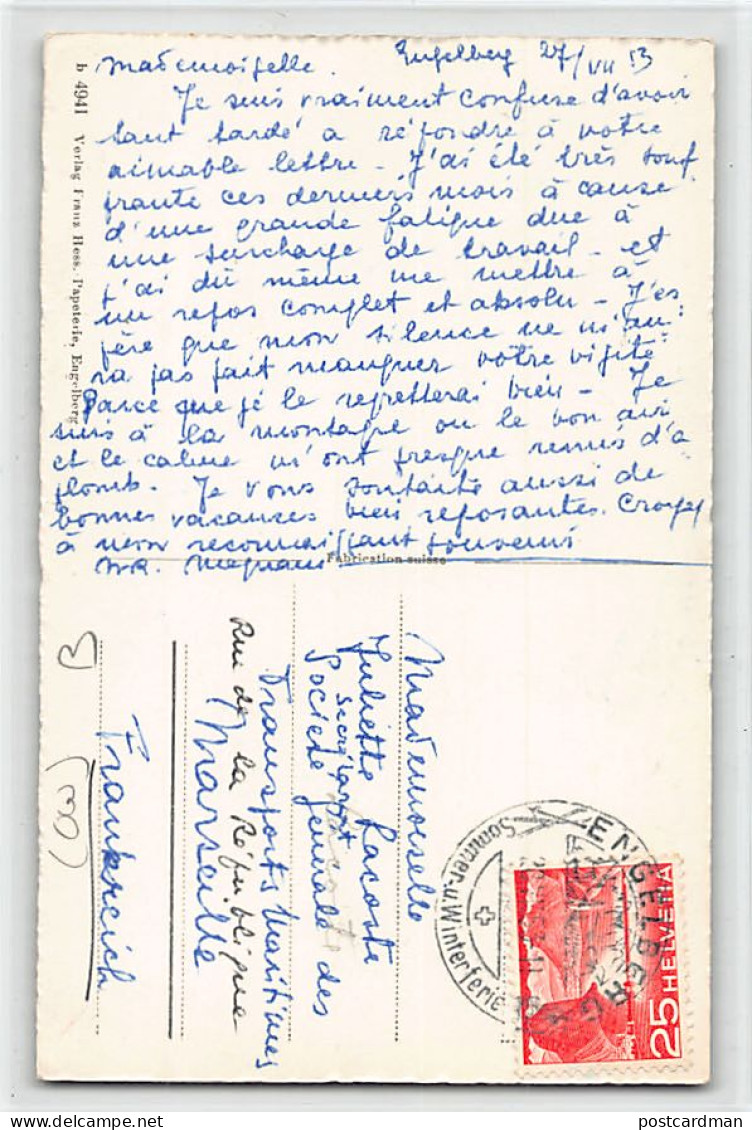 Engelberg 27/VII 53
Mademoiselle.
Je suis vraiment confuse d'avoir
tant tardé a répondre à votre
aimable lettre - J'ai été très souf
frante ces derniers mois à cause
d'une grande fatigue due à
une surcharge de travail - et
j'ai dû même me mettre à
un repos complet et absolu - J'es
père que mon silence ne m'au
ra pas fait manquer votre visite
parce que je le regretterai bien - Je
suis à la montagne ou le bon air
et le calme m'ont presque remis d'a
plomb. Je vous souhaite aussi de
bonnes vacances bien reposantes. Croyez
à mon reconnaissant souvenir
b 4941 Verlag Franz Hess. Papeterie, Engelberg
Fabrication suisse
Mademoiselle
Juliette Lacoste
Société Générale des
Transports Maritimes
Rue de la République
Marseille
Frankreich
ENGELBERG
Sommer- u. Winterferie
25 HELVETIA
postcardman